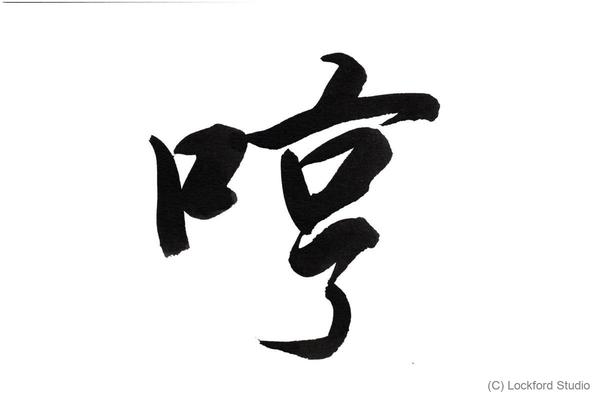 哼
(C) Lockford Studio